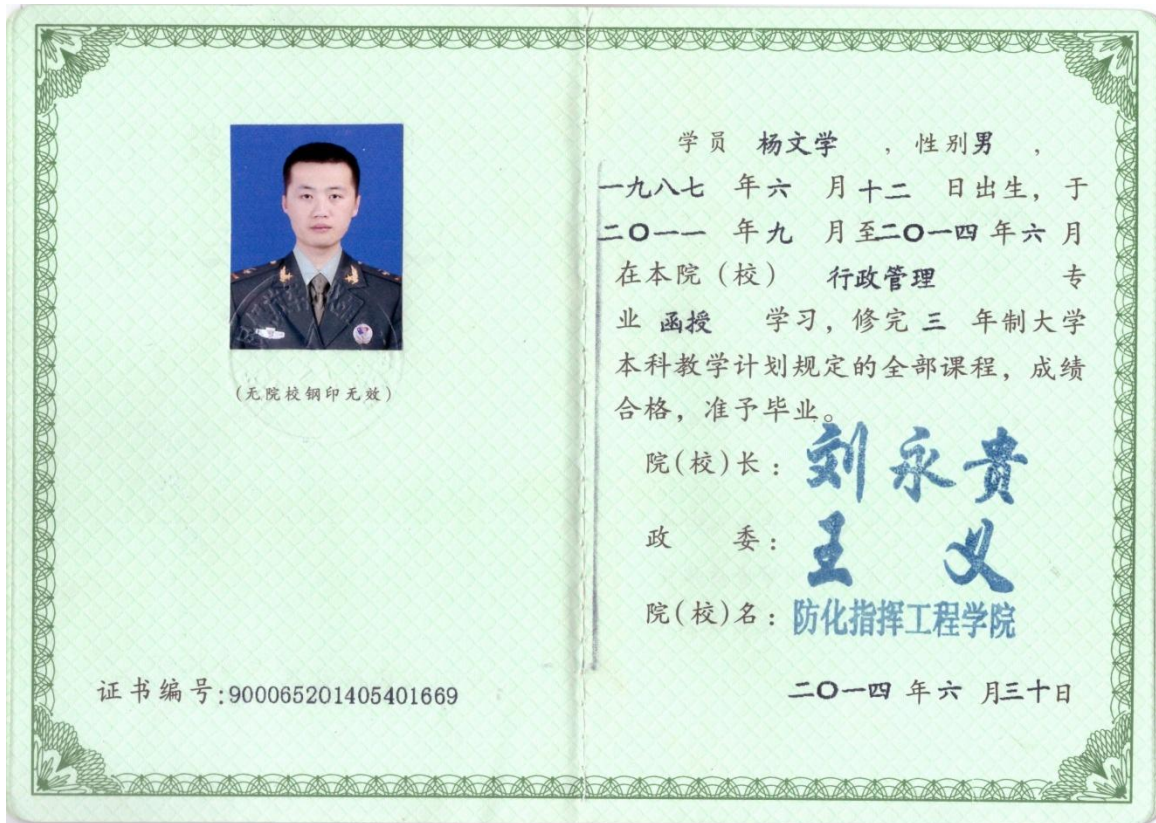 (无院校钢印无效)
证书编号:900065201405401669
学员 杨文学 ,性别男 ,
一九八七 年六 月十二 日出生,于
二〇一一 年九 月至二〇一四年六月
在本院(校) 行政管理 专
业 函授 学习,修完 三 年制大学
本科教学计划规定的全部课程,成绩
合格,准予毕业。
院(校)长:刘永贵
政 委:王 义
院(校)名:防化指挥工程学院
二〇一四 年六 月三十日